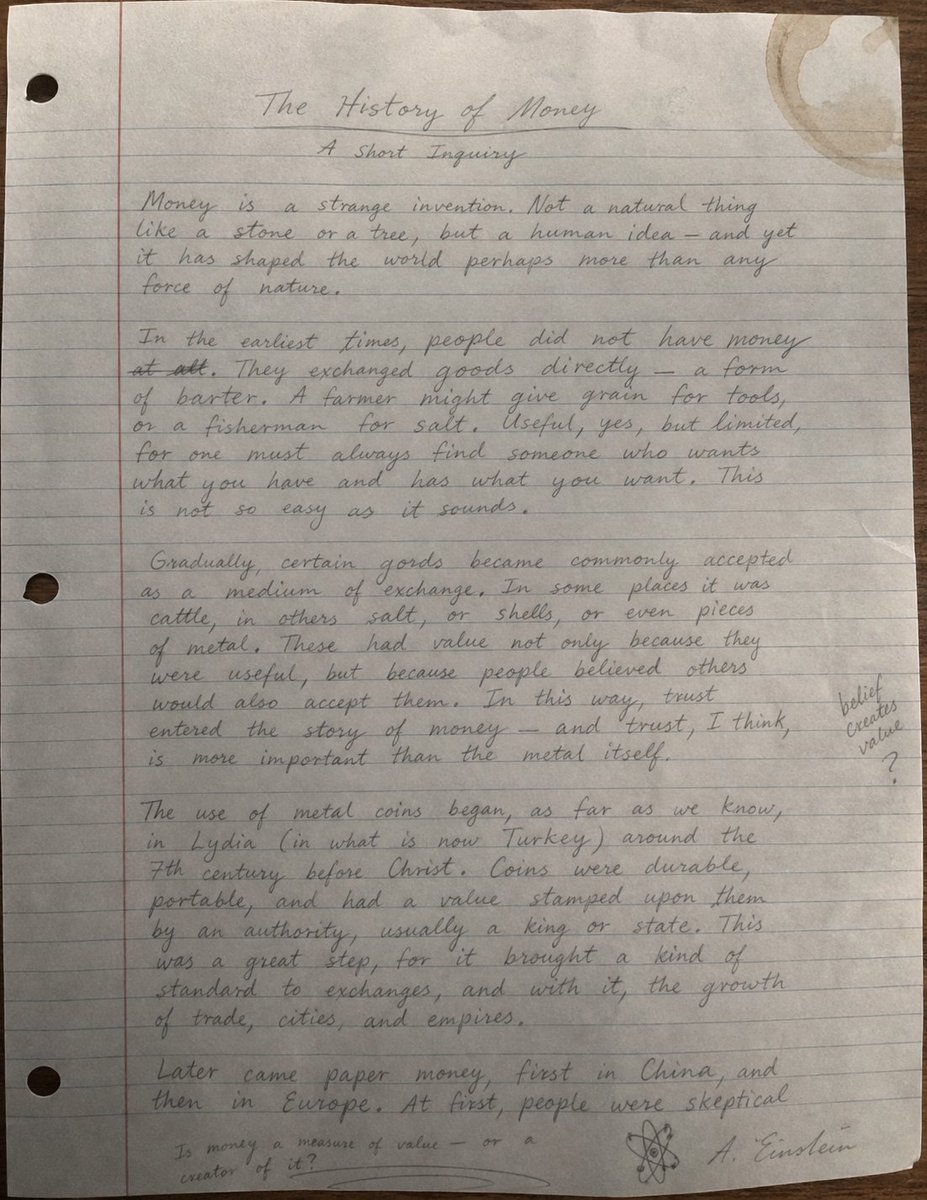 The History of Money
A Short Inquiry
Money is a strange invention. Not a natural thing
like a stone or a tree, but a human idea – and yet
it has shaped the world perhaps more than any
force of nature.
In the earliest times, people did not have money
at all. They exchanged goods directly – a form
of barter. A farmer might give grain for tools,
or a fisherman for salt. Useful, yes, but limited,
for one must always find someone who wants
what you have and has what you want. This
is not so easy as it sounds.
Gradually, certain goods became commonly accepted
as a medium of exchange. In some places it was
cattle, in others salt, or shells, or even pieces
of metal. These had value not only because they
were useful, but because people believed others
would also accept them. In this way, trust
entered the story of money – and trust, I think,
is more important than the metal itself.
belief
creates
value
?
The use of metal coins began, as far as we know,
in Lydia (in what is now Turkey) around the
7th century before Christ. Coins were durable,
portable, and had a value stamped upon them
by an authority, usually a king or state. This
was a great step, for it brought a kind of
standard to exchanges, and with it, the growth
of trade, cities, and empires.
Later came paper money, first in China, and
then in Europe. At first, people were skeptical
Is money a measure of value – or a
creator of it?
A. Einstein